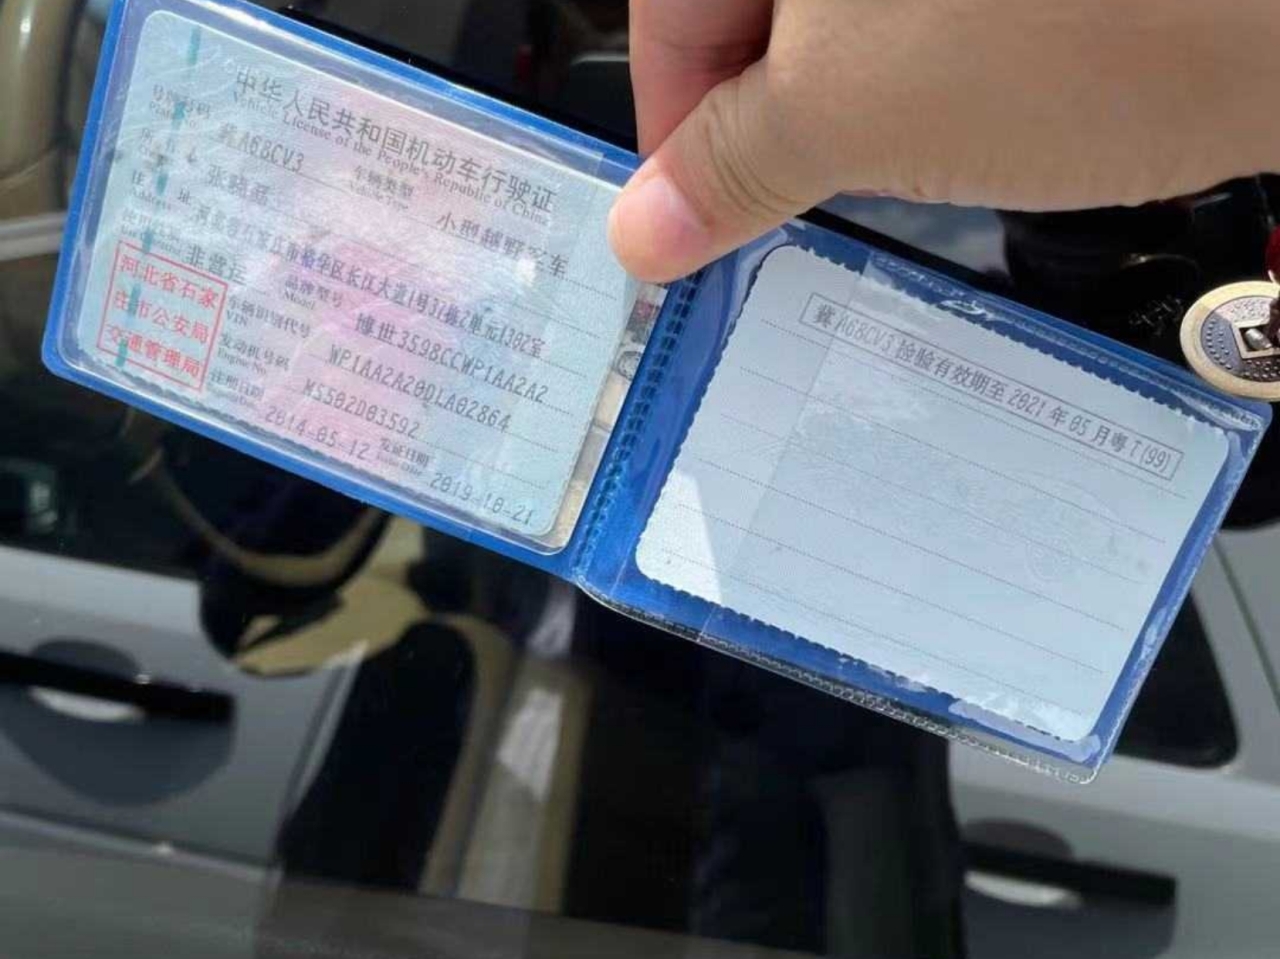 中华人民共和国机动车行驶证
Vehicle License of the People's Republic of China
号牌号码 冀A68CV3 车辆类型 小型越野客车
Plate No. Vehicle Type
所 人 张晓磊
住 址 河北省石家庄市裕华区长江大道1号37栋2单元1302室
Address
使用性质 非营运 品牌型号 博世3598CCWP1AA2A2
Use Character Model
河北省石家
庄市公安局
交通管理局
车辆识别代号 WP1AA2A20DLA02864
VIN
发动机号码 M5502D03592
Engine No.
注册日期 2014-05-12 发证日期 2019-10-21
Issue Date
冀A68CV3 检验有效期至 2021 年 05 月粤T(99)